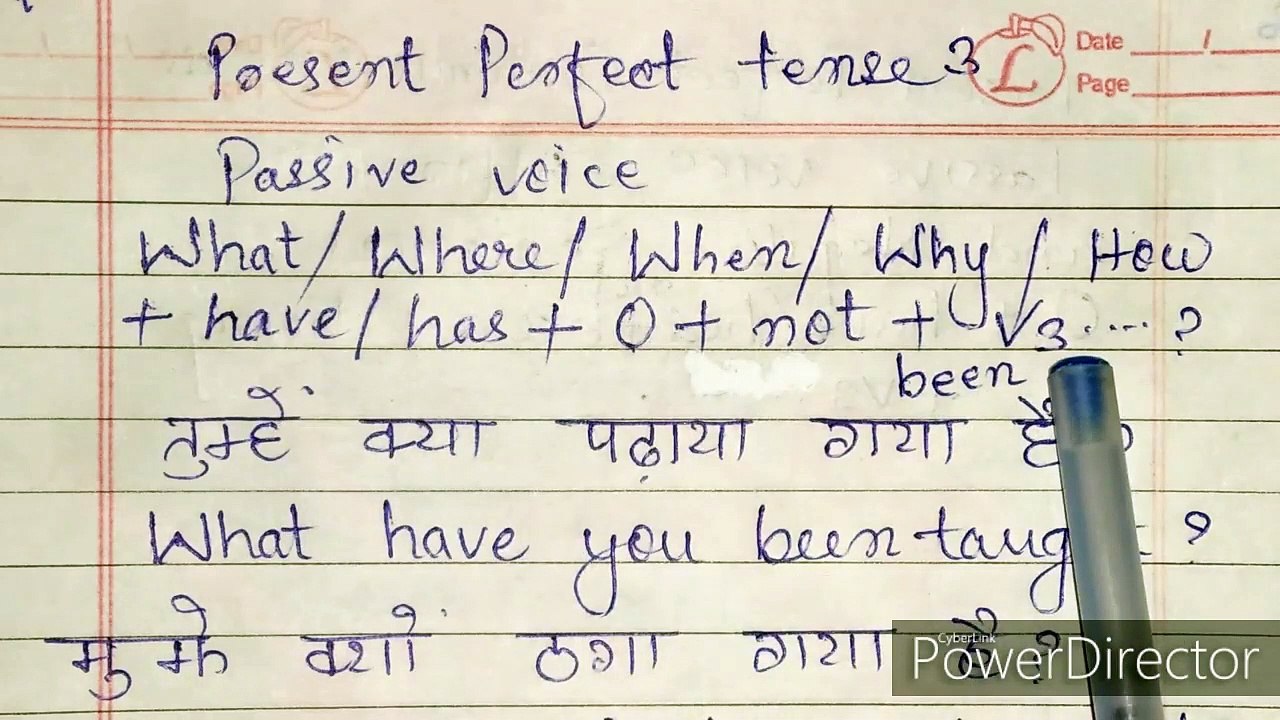 Present Perfect tense 3
L
Date 1
Page
Passive voice
What/ Where/ When/ Why / How
+ have/has + O + not + V3....?
been
तुम्हें क्या पढ़ाया गया है
What have you been taug ?
मुझे क्यों ठगा गया है ?
CyberLink
PowerDirector